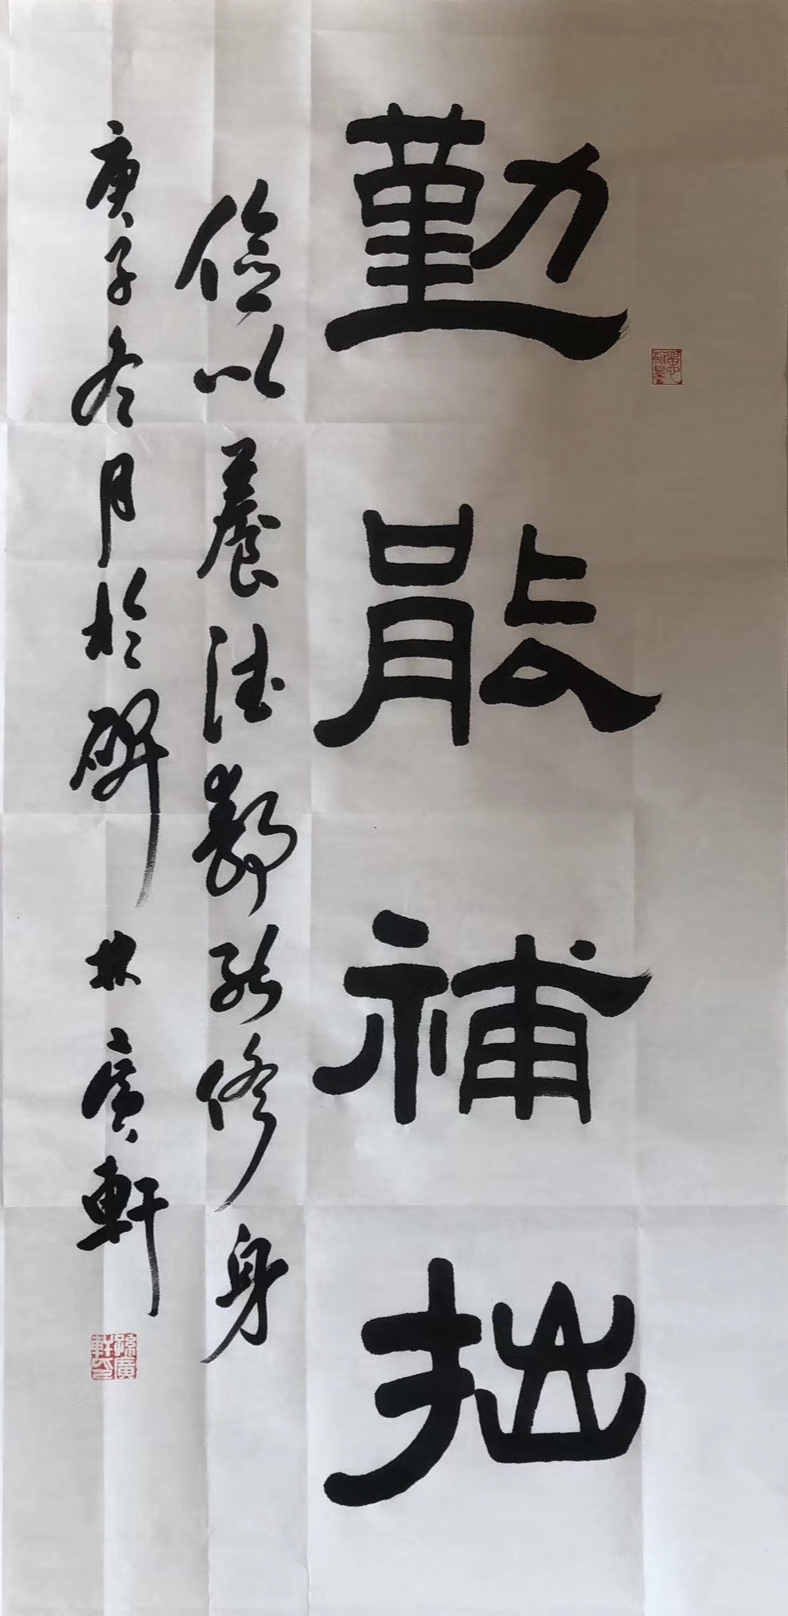 勤能補拙
儉以養德靜能修身
庚子冬月於碑林廣軒
孫廣軒印